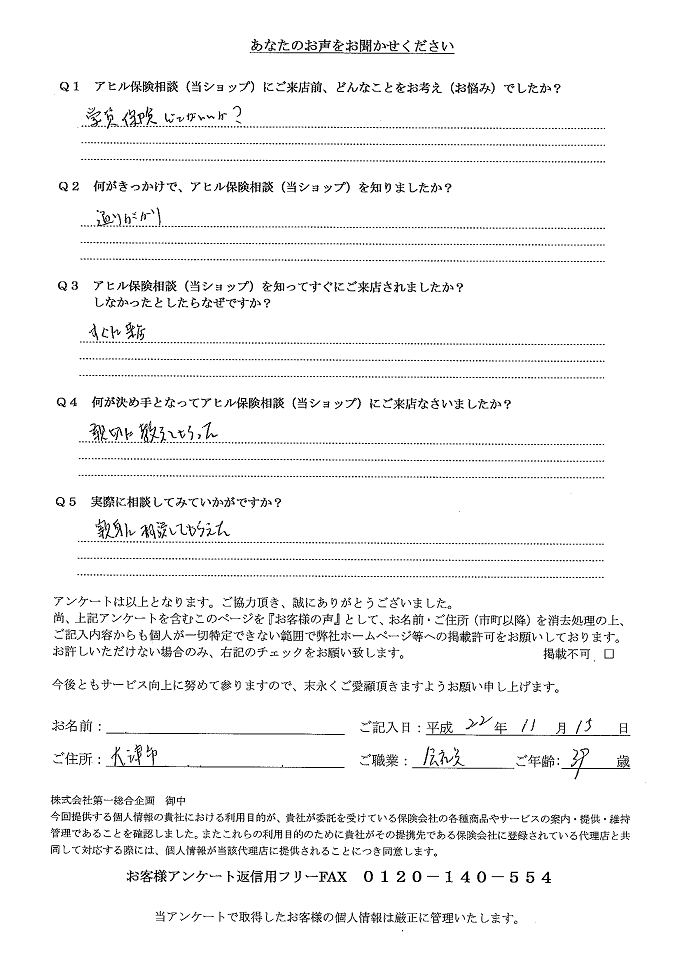 あなたのお声をお聞かせください
Q1 アヒル保険相談(当ショップ)にご来店前、どんなことをお考え(お悩み)でしたか?
学資保険 どこがいいか?
Q2 何がきっかけで、アヒル保険相談(当ショップ)を知りましたか?
通りがかり
Q3 アヒル保険相談(当ショップ)を知ってすぐにご来店されましたか?
しなかったとしたらなぜですか?
すぐに来店
Q4 何が決め手となってアヒル保険相談(当ショップ)にご来店なさいましたか?
親切に教えてもらった
Q5 実際に相談してみていかがですか?
親身に相談してもらえた
アンケートは以上となります。ご協力頂き、誠にありがとうございました。
尚、上記アンケートを含むこのページを『お客様の声』として、お名前・ご住所(市町以降)を消去処理の上、
ご記入内容からも個人が一切特定できない範囲で弊社ホームページ等への掲載許可をお願いしております。
お許しいただけない場合のみ、右記のチェックをお願い致します。 掲載不可 □
今後ともサービス向上に努めて参りますので、末永くご愛顧頂きますようお願い申し上げます。
お名前: ご記入日:平成 22 年 11 月 15 日
ご住所: 大津市 ご職業: 会社員 ご年齢: 39 歳
株式会社第一総合企画 御中
今回提供する個人情報の貴社における利用目的が、貴社が委託を受けている保険会社の各種商品やサービスの案内・提供・維持
管理であることを確認しました。またこれらの利用目的のために貴社がその提携先である保険会社に登録されている代理店と共
同して対応する際には、個人情報が当該代理店に提供されることにつき同意します。
お客様アンケート返信用フリーFAX 0120-140-554
当アンケートで取得したお客様の個人情報は厳正に管理いたします。